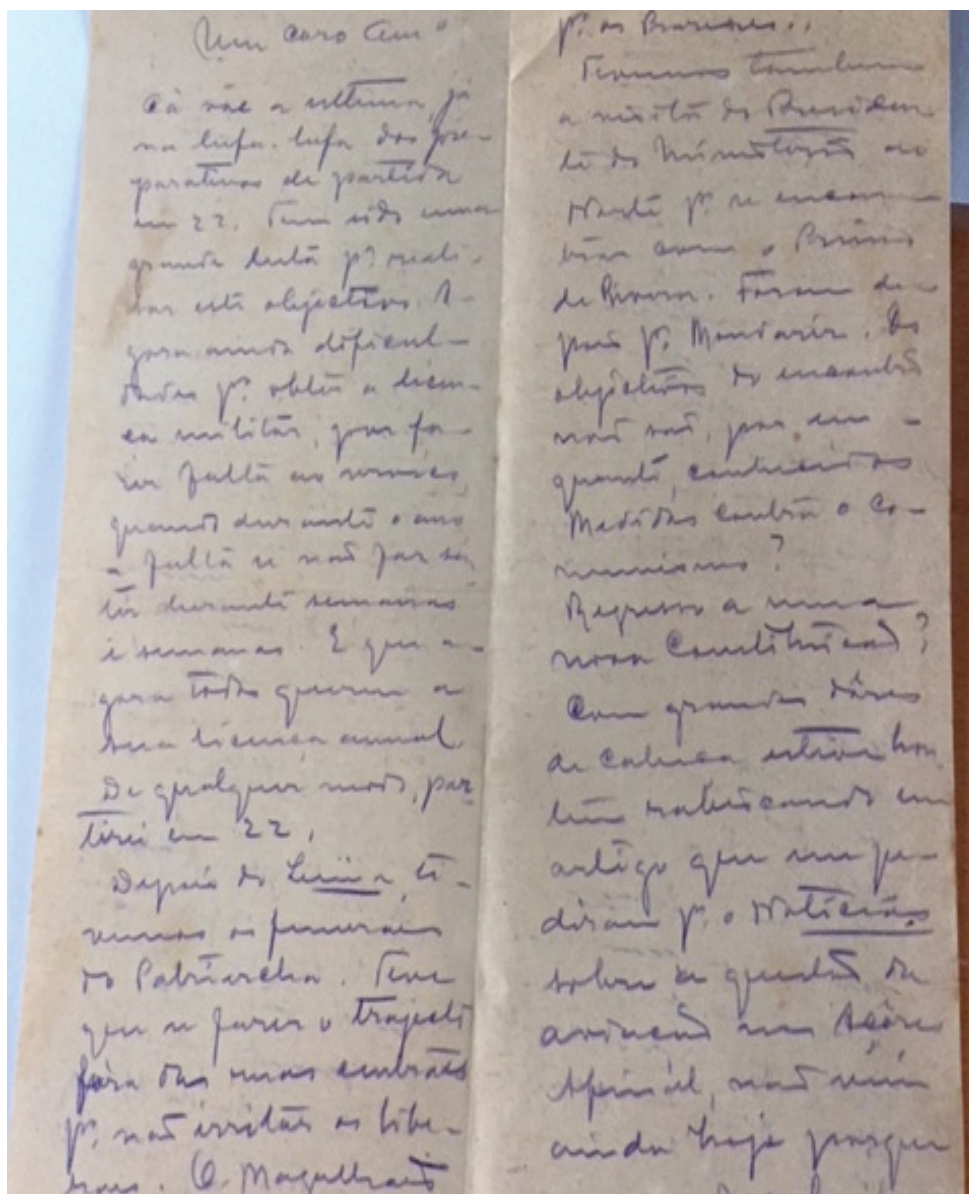 Meu caro Am.º
Cá vae a ultima, já
na lufa-lufa dos pre-
parativos de partida
em 22. Tem sido uma
grande lucta pª reali-
sar este objectivo. A-
gora ainda dificul-
dades pª obter a licen-
ça militar, por fa-
zer falta ao serviço,
quando durante o ano
a falta se não faz sen-
tir durante semanas
e semanas. E que a-
gora todos querem a
sua licença annual.
De qualquer modo, par-
tirei em 22.
Depois do ti-
vemos os funeraes
do Patriarcha. Teve
que se fazer o trajecto
fóra das ruas centraes
pª não irritar os libe-
raes. O Magalhães
pª os
Tivemos tambem
a visita do Presiden-
te do Ministerio ao
Norte pª se encon-
trar com o Primo
de Rivera. Foram de-
pois pª Mondariz. Os
objectivos do encontro
não são, por em-
quanto, conhecidos
Medidas contra o Co-
munismo?
Regresso a uma
nova Constituição?
Com grandes dôres
de cabeça estive hon-
tem rabiscando um
artigo que me pe-
diram pª o Noticias
sobre a questão da
aviação nos Açôres
Afinal, não vem
ainda hoje porque